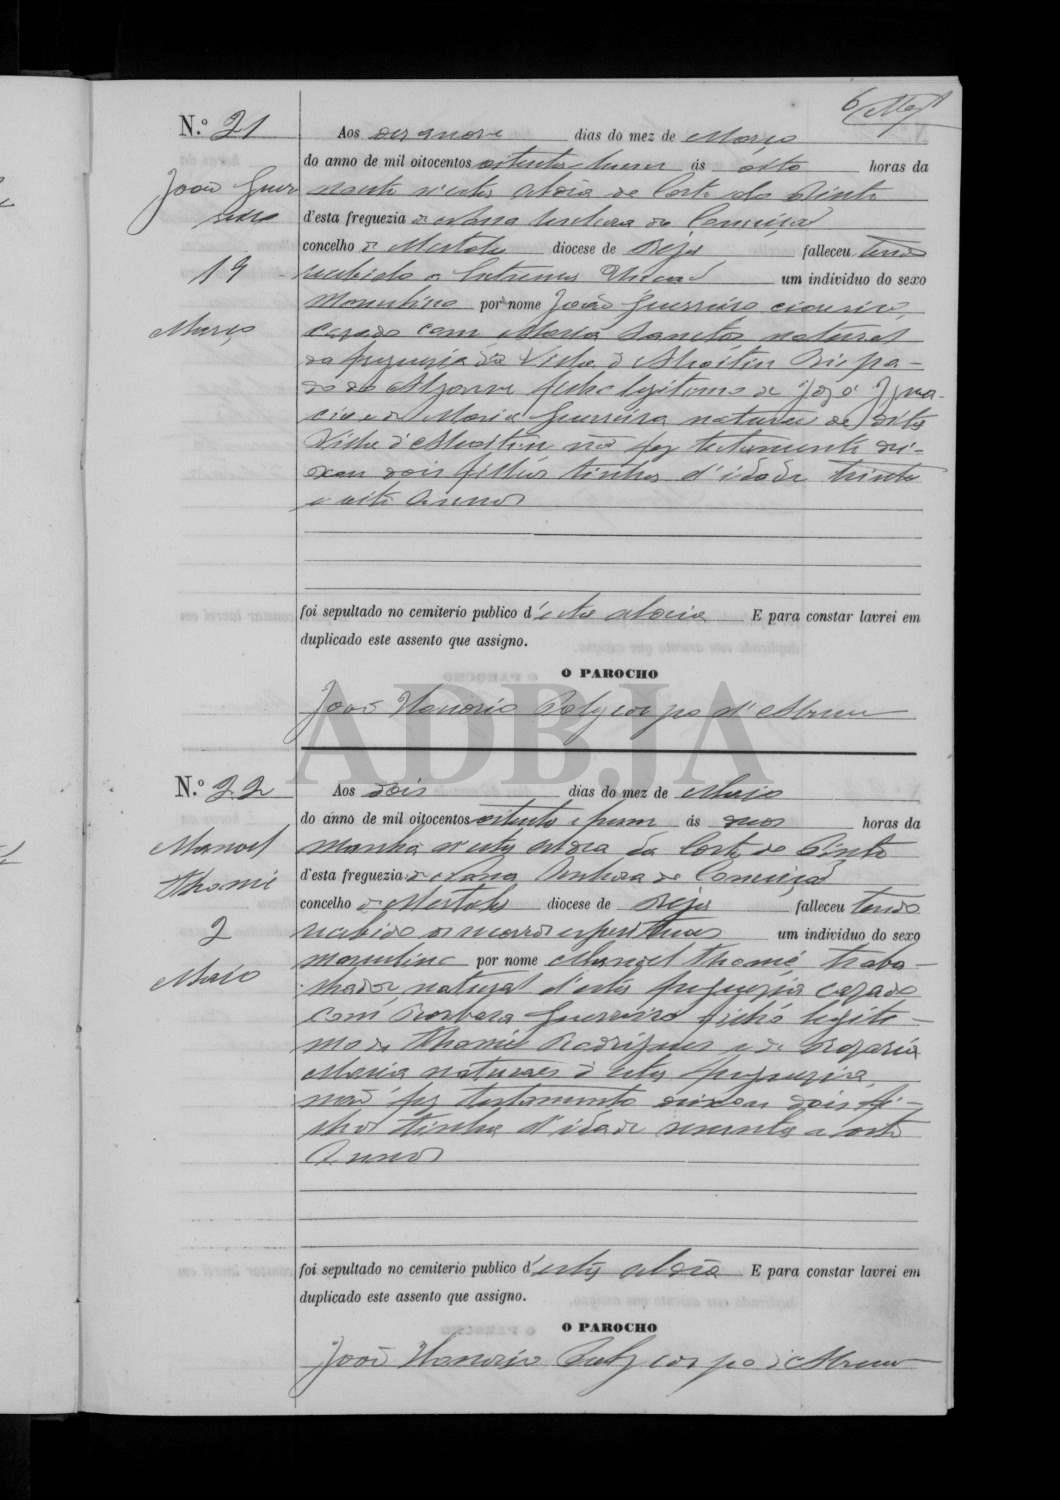 6
N.º 21
Aos des anove dias do mez de Março
do anno de mil oitocentos oitenta hum ás oito horas da
João Guer noute n'esta Aldeia da Corte do Pinto
reiro
d'esta freguezia de Nossa Senhora da Conceição
concelho de Mertola diocese de Beja falleceu tendo
19 recebido a Extrema Uncão um individuo do sexo
Masculino por nome João Guerreiro
Março cazado com Maria Santos natural
da freguezia da Villa d'Alcoitim Bispa-
do do Algarve filho legitimo de José Igna-
cio e de Maria Guerreira naturais da dita
Villa d'Alcoitim não fez testamento dei-
xou dois filhos tinha d'idade trinta
e oito Annos
foi sepultado no cemiterio publico d'esta aldeia E para constar lavrei em
duplicado este assento que assigno.
O PAROCHO
João Honorio Polycarpo d'Abreu
ADBJA
N.º 22
Aos dois dias do mez de Maio
do anno de mil oitocentos oitenta e hum ás duas horas da
Manoel manhã n'esta Aldeia da Corte do Pinto
Thomé d'esta freguezia de Nossa Senhora da Conceição
concelho de Mertola diocese de Beja falleceu tendo
2 recebido os um individuo do sexo
masculino por nome Manoel Thomé traba-
Maio lhador, natural d'esta freguezia cazado
com Barbara Guerreiro filho legiti-
mo de Thomé Rodrigues e de Rozaria
Maria naturaes d'esta freguezia,
não fez testamento deixou dois fi-
lhos tinha d'idade sesenta e oito
Annos
foi sepultado no cemiterio publico d'esta aldeia E para constar lavrei em
duplicado este assento que assigno.
O PAROCHO
João Honorio Polycarpo d'Abreu